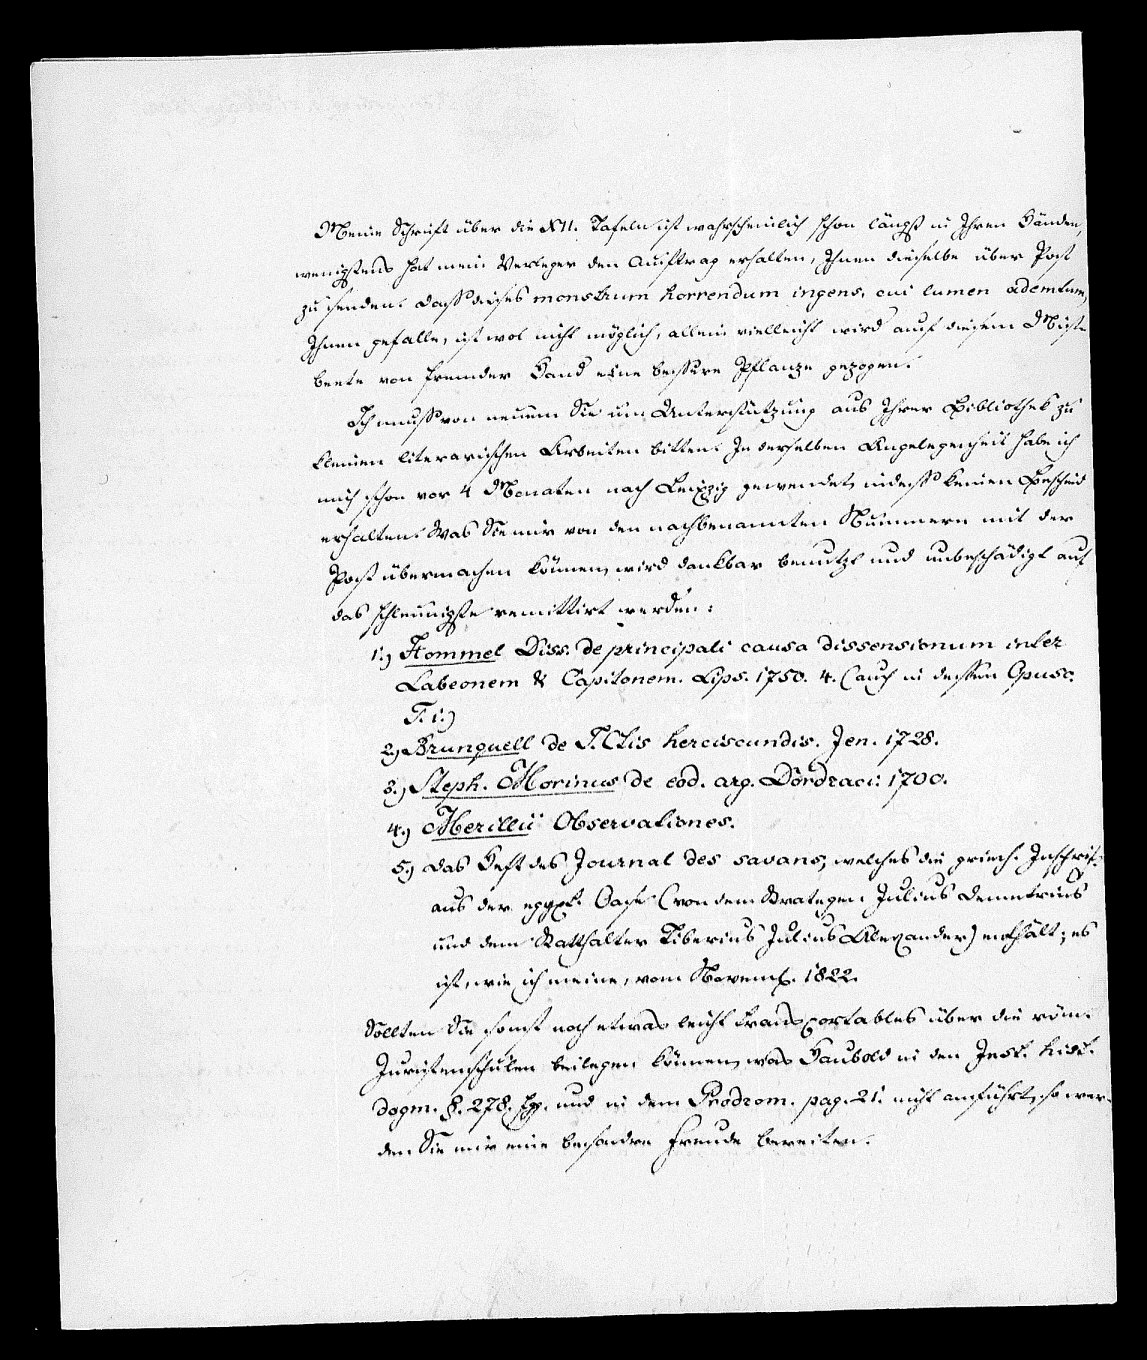 Meine Schrift über die XII. Tafeln ist wahrscheinlich schon längst in Ihren Händen,
wenigstens hat mein Verleger den Auftrag erhalten, Ihnen dieselbe über Post
zu senden. Dass dieses monstrum horrendum ingens, cui lumen ademtum,
Ihnen gefalle, ist wol nicht möglich, allein vielleicht wird auf diesem Mist-
beete von fremder Hand eine bessere Pflanze gezogen.
Ich muss von neuem Sie um Unterstützung aus Ihrer Bibliothek zu
kleinen literarischen Arbeiten bitten. In derselben Angelegenheit habe ich
mich schon vor 4 Monaten nach Leipzig gewendet, indess keinen Bescheid
erhalten. Was Sie mir von den nachbenannten Nummern mit der
Post übermachen können, wird dankbar benutzt und unbeschädigt auf
das schleunigste remittirt werden:
1.) Hommel Diss. de principali causa dissensionum inter
Labeonem & Capitonem. Lips. 1750. 4. (auch in dessen Opusc.
T. 1.)
2.) Brunquell de I.Ctis herciscundis. Jen. 1728.
3.) Steph. Morinus de eod. arg. Dordraci: 1700.
4.) Merillii Observationes.
5.) Das Heft des Journal des savans, welches die griech. Inschrift
aus der egypt. Oase (von dem Strategen Julius Demetrius
und dem Statthalter Tiberius Julius Alexander) enthält; es
ist, wie ich meine, vom Novemb. 1822.
Sollten Sie sonst noch etwas leicht transportables über die röm.
Juristenschulen beilegen können, was Haubold in den Inst. hist.
dogm. §. 278. fgg. und in dem Prodrom. pag. 21. nicht anführt, so wer-
den Sie mir eine besondre Freude bereiten.